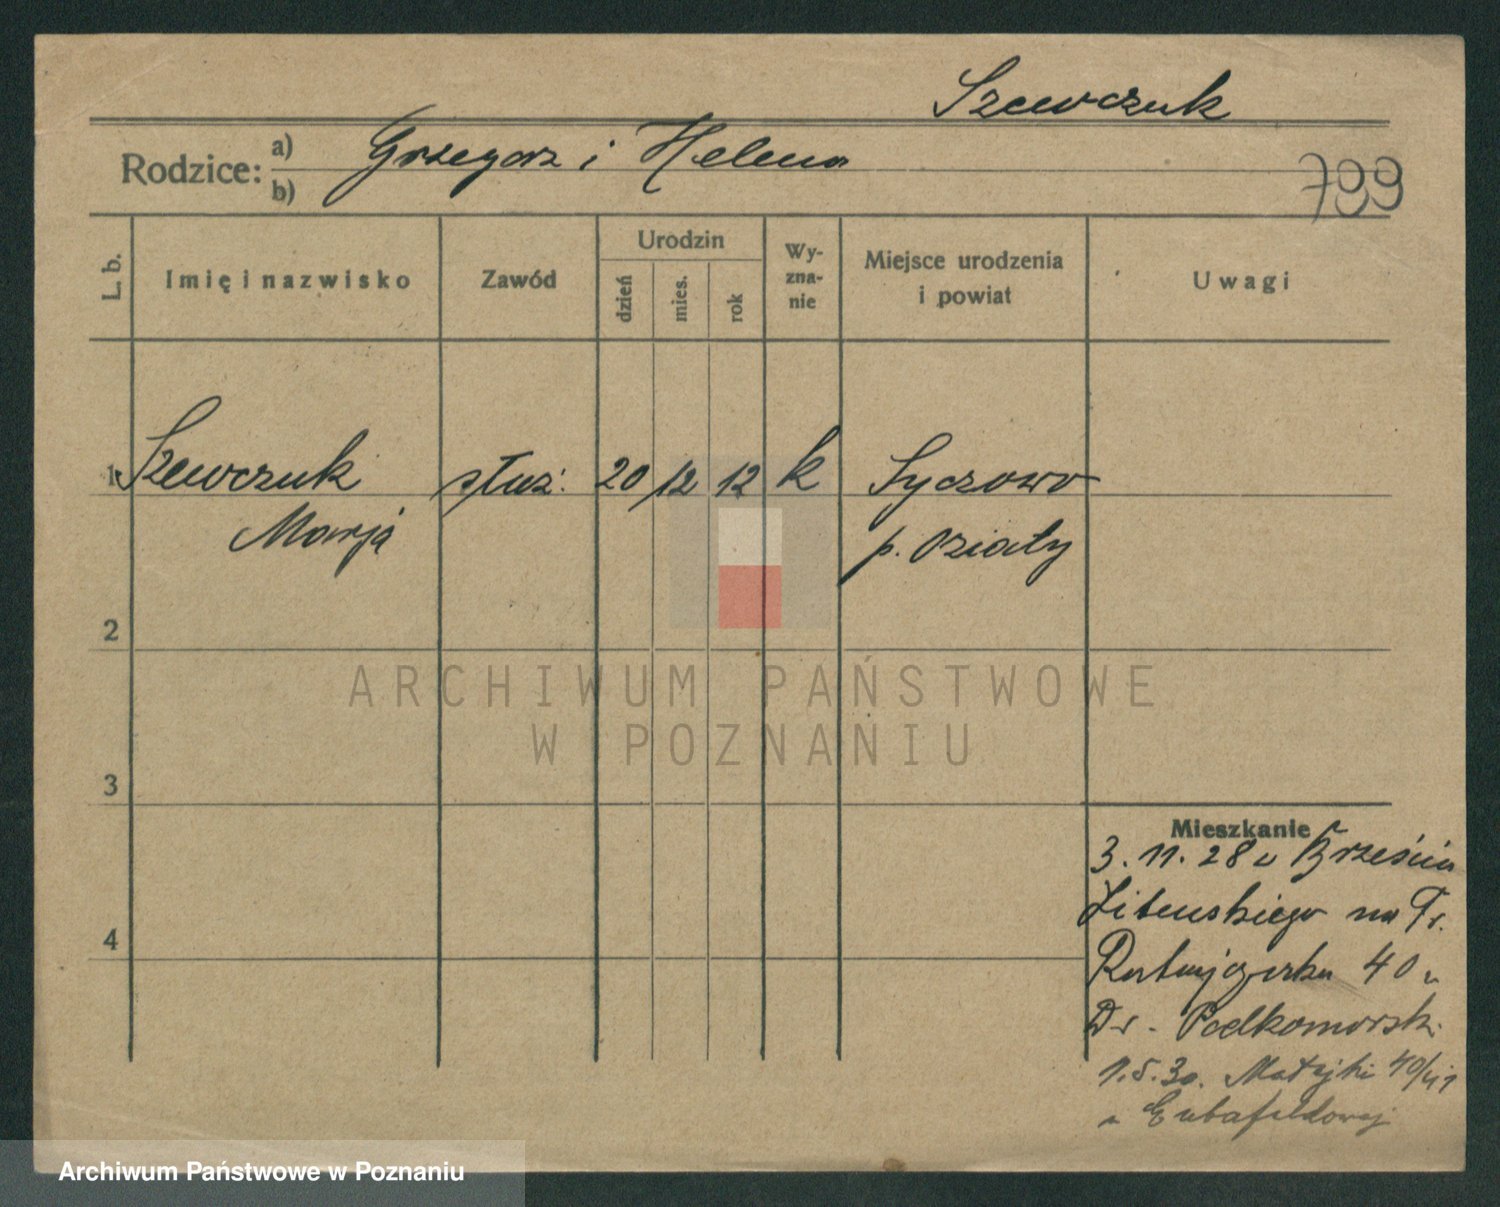 Szewczuk
Rodzice: a) Grzegorz i Helena
b)
799
L. b.
Imię i nazwisko
Zawód
Urodzin
dzień
mies.
rok
Wy-
zna-
nie
Miejsce urodzenia
i powiat
Uwagi
1 Szewczuk służ. 20 12 12 k Syczowo
Marja p. Działy
2
3
4
ARCHIWUM PAŃSTWOWE
W POZNANIU
Mieszkanie
3. 11. 28 z Brześcia
Litewskiego na Fr.
Ratajczaka 40 u
Dr. Podkomorski
1.5.30. Matejki 40/41
u
Archiwum Państwowe w Poznaniu